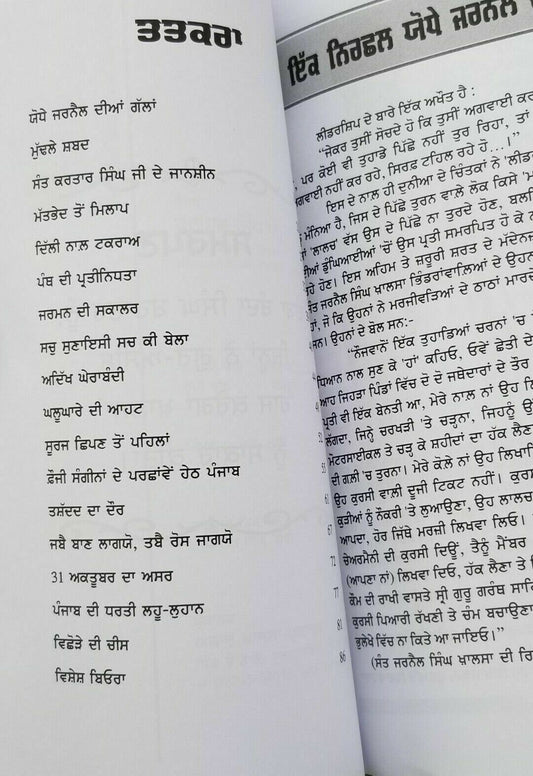 ਤਤਕਰਾ
ਯੋਧੇ ਜਰਨੈਲ ਦੀਆਂ ਗੱਲਾਂ
ਮੁੱਢਲੇ ਸ਼ਬਦ
ਸੰਤ ਕਰਤਾਰ ਸਿੰਘ ਜੀ ਦੇ ਜਾਨਸ਼ੀਨ
ਮੱਤਭੇਦ ਤੋਂ ਮਿਲਾਪ
ਦਿੱਲੀ ਨਾਲ਼ ਟਕਰਾਅ
ਪੰਥ ਦੀ ਪ੍ਰਤੀਨਿਧਤਾ
ਜਰਮਨ ਦੀ ਸਕਾਲਰ
ਸਚੁ ਸੁਣਾਇਸੀ ਸਚ ਕੀ ਬੇਲਾ
ਅਦਿੱਖ ਘੇਰਾਬੰਦੀ
ਘਲੂਘਾਰੇ ਦੀ ਆਹਟ
ਸੂਰਜ ਛਿਪਣ ਤੋਂ ਪਹਿਲਾਂ
ਫ਼ੌਜੀ ਸੰਗੀਨਾਂ ਦੇ ਪਰਛਾਂਵੇਂ ਹੇਠ ਪੰਜਾਬ
ਤਸ਼ੱਦਦ ਦਾ ਦੌਰ
ਜਬੈ ਬਾਣ ਲਾਗਯੋ, ਤਬੈ ਰੋਸ ਜਾਗਯੋ
31 ਅਕਤੂਬਰ ਦਾ ਅਸਰ
ਪੰਜਾਬ ਦੀ ਧਰਤੀ ਲਹੂ-ਲੁਹਾਨ
ਵਿਛੋੜੇ ਦੀ ਚੀਸ
ਵਿਸ਼ੇਸ਼ ਬਿਓਰਾ
67
72
77
81
86
ਇੱਕ ਨਿਰਛਲ ਯੋਧੇ ਜਰਨੈਲ
ਲੀਡਰਸ਼ਿਪ ਦੇ ਬਾਰੇ ਇੱਕ ਅਖੌਤ ਹੈ :
"ਜੇਕਰ ਤੁਸੀਂ ਸੋਚਦੇ ਹੋ ਕਿ ਤੁਸੀਂ ਅਗਵਾਈ ਕਰ
ਪਰ ਕੋਈ ਵੀ ਤੁਹਾਡੇ ਪਿੱਛੇ ਨਹੀਂ ਤੁਰ ਰਿਹਾ, ਤਾਂ
ਅਗਵਾਈ ਨਹੀਂ ਕਰ ਰਹੇ, ਸਿਰਫ਼ ਟਹਿਲ ਰਹੇ ਹੋ...।"
ਇਸ ਦੇ ਨਾਲ਼ ਹੀ ਦੁਨੀਆ ਦੇ ਚਿੰਤਕਾਂ ਨੇ 'ਲੀਡਰ
ਮੰਨਿਆ ਹੈ, ਜਿਸ ਦੇ ਪਿੱਛੇ ਤੁਰਨ ਵਾਲ਼ੇ ਲੋਕ ਕਿਸੇ
'ਲਾਲਚ' ਵੱਸ ਉਸ ਦੇ ਪਿੱਛੇ ਨਾ ਤੁਰਦੇ ਹੋਣ, ਬਲਕਿ
ਡੂੰਘਿਆਈਆਂ 'ਚੋਂ ਉਸ ਪ੍ਰਤੀ ਸਮਰਪਿਤ ਹੋ ਕੇ
ਰਹੇ ਹੋਣ। ਇਸ ਅਹਿਮ ਤੇ ਜ਼ਰੂਰੀ ਸ਼ਰਤ ਦੇ ਮੱਦੇਨਜ਼ਰ
ਸੰਤ ਜਰਨੈਲ ਸਿੰਘ ਖ਼ਾਲਸਾ ਭਿੰਡਰਾਂਵਾਲਿਆਂ ਦੇ ਉਹਨਾਂ
ਹਾਂ, ਜੋ ਕਿ ਉਹਨਾਂ ਨੇ ਮਰਜੀਵੜਿਆਂ ਦੇ ਠਾਠਾਂ ਮਾਰਦੇ
ਸਨ। ਉਹਨਾਂ ਦੇ ਬੋਲ ਸਨ:-
"ਨੌਜਵਾਨੋਂ ਇੱਕ ਤੁਹਾਡਿਆਂ ਚਰਨਾਂ 'ਚ
ਧਿਆਨ ਨਾਲ ਸੁਣ ਕੇ 'ਹਾਂ' ਕਹਿਓ, ਓਵੇਂ ਛੇਤੀ ਦੇ
ਆਹ ਜਿਹੜਾ ਪਿੰਡਾਂ ਵਿੱਚ ਦੋ ਦੋ ਜਥੇਦਾਰਾਂ ਦੇ ਤੌਰ
ਪ੍ਰਤੀ ਵੀ ਇੱਕ ਬੇਨਤੀ ਆ, ਮੇਰੇ ਨਾਲ਼ ਨਾਂ ਉਹ
ਲੱਗਦਾ, ਜਿਨ੍ਹੇ ਚਰਖੜੀ 'ਤੇ ਚੜ੍ਹਨਾ, ਜਿਹਨੂੰ
ਮੋਟਰਸਾਈਕਲ ਤੇ ਚੜ੍ਹ ਕੇ ਸ਼ਹੀਦਾਂ ਦਾ ਹੱਕ ਲੈਣਾ
ਦੀ ਗਲ਼ੀ 'ਚ ਤੁਰਨਾ। ਮੇਰੇ ਕੋਲੇ ਨਾਂ ਉਹ ਲਿਖਾਵੇ
ਉਹ ਕੁਰਸੀ ਵਾਲ਼ੀ ਦੂਜੀ ਟਿਕਟ ਨਹੀਂ। ਕੁਰਸੀ
ਕੁੜੀਆਂ ਨੂੰ ਨੌਕਰੀ 'ਤੇ ਲੁਆਉਣਾ, ਉਹ ਲਾਲਚ
ਆਪਦਾ, ਹੋਰ ਜਿੱਥੇ ਮਰਜੀ ਲਿਖਵਾ ਲਿਓ।
ਚੇਅਰਮੈਨੀ ਦੀ ਕੁਰਸੀ ਦਿਊਂ, ਤੈਨੂੰ ਮੈਂਬਰ
(ਆਪਣਾ ਨਾਂ) ਲਿਖਵਾ ਦਿਓ, ਹੱਕ ਲੈਣਾ ਤੇ
ਕੌਮ ਦੀ ਰਾਖੀ ਵਾਸਤੇ ਸ੍ਰੀ ਗੁਰੂ ਗਰੰਥ ਸਾਹਿ
ਕੁਰਸੀ ਪਿਆਰੀ ਰੱਖਣੀ ਤੇ ਚੰਮ ਬਚਾਉਣਾ
ਭੁਲੇਖੇ ਵਿੱਚ ਨਾ ਕਿਤੇ ਆ ਜਾਇਓ।"
(ਸੰਤ ਜਰਨੈਲ ਸਿੰਘ ਖ਼ਾਲਸਾ ਦੀ ਰਿ